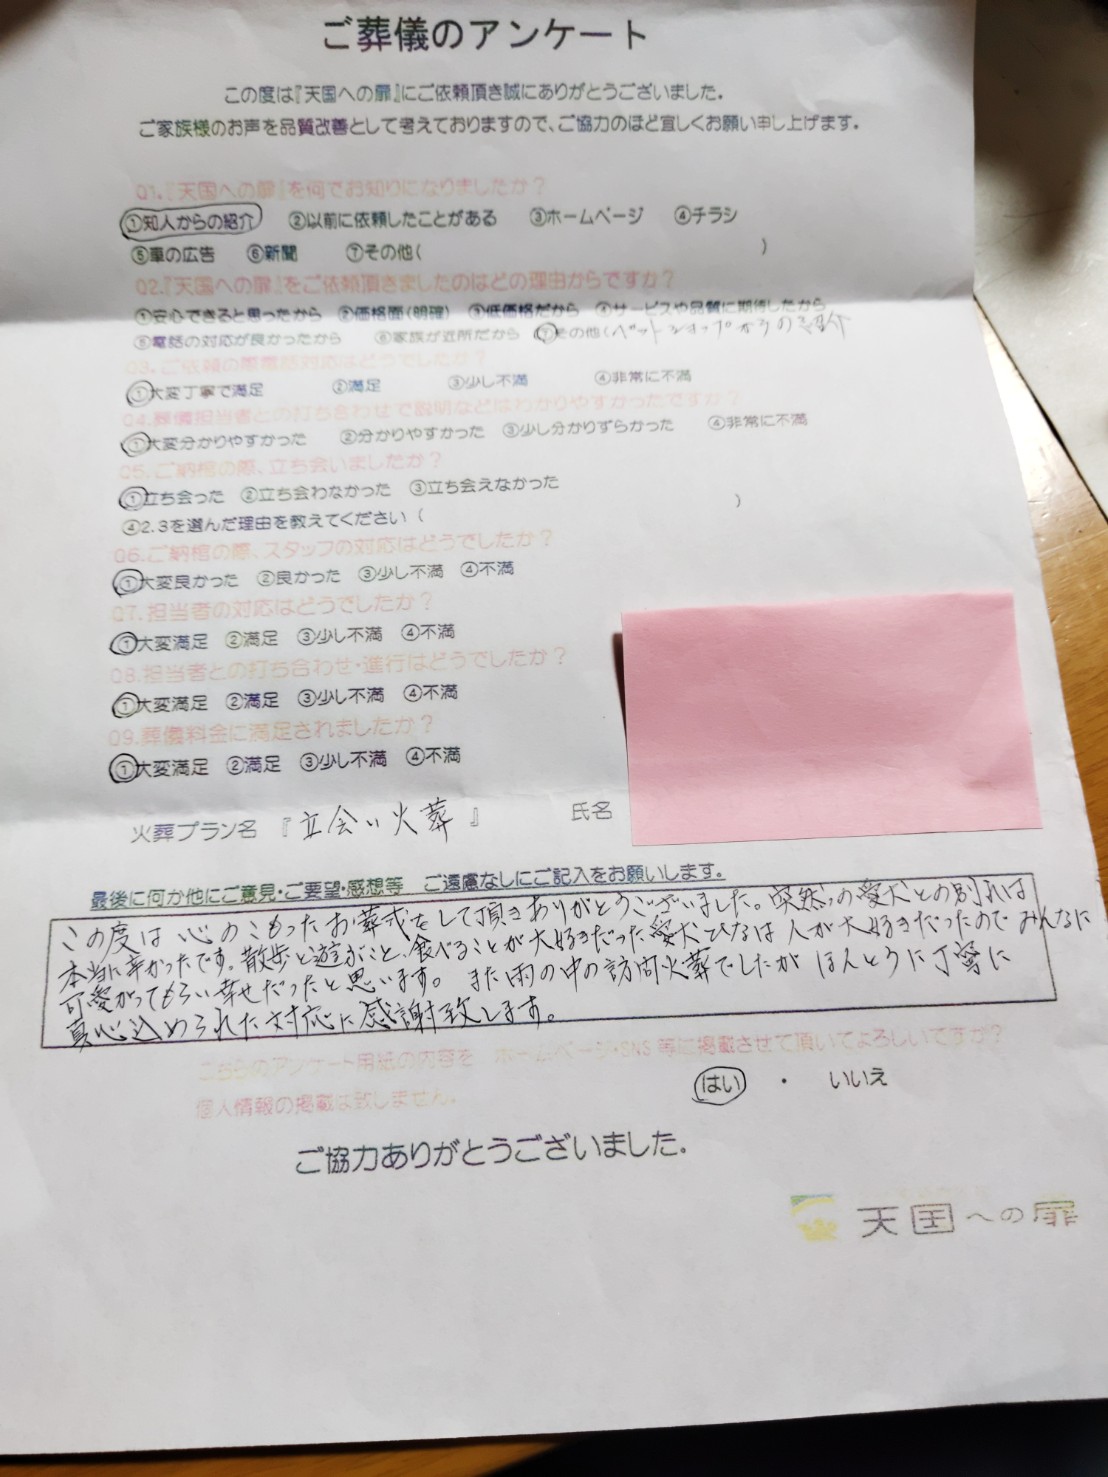 ご葬儀のアンケート
この度は『天国への扉』にご依頼頂き誠にありがとうございました。
ご家族様のお声を品質改善として考えておりますので、ご協力のほど宜しくお願い申し上げます。
Q1.『天国への扉』を何でお知りになりましたか？
①知人からの紹介 ②以前に依頼したことがある ③ホームページ ④チラシ
⑤車の広告 ⑥新聞 ⑦その他( )
Q2.『天国への扉』をご依頼頂きましたのはどの理由からですか？
①安心できると思ったから ②価格面(明確) ③低価格だから ④サービスや品質に期待したから
⑤電話の対応が良かったから ⑥家族が近所だから ⑦その他(ペットショップからの紹介
Q3.ご依頼の際電話対応はどうでしたか？
①大変丁寧で満足 ②満足 ③少し不満 ④非常に不満
Q4.葬儀担当者との打ち合わせで説明などはわかりやすかったですか？
①大変分かりやすかった ②分かりやすかった ③少し分かりずらかった ④非常に不満
Q5.ご納棺の際、立ち会いましたか？
①立ち会った ②立ち会わなかった ③立ち会えなかった
④2.3を選んだ理由を教えてください ( )
Q6.ご納棺の際、スタッフの対応はどうでしたか？
①大変良かった ②良かった ③少し不満 ④不満
Q7.担当者の対応はどうでしたか？
①大変満足 ②満足 ③少し不満 ④不満
Q8.担当者との打ち合わせ・進行はどうでしたか？
①大変満足 ②満足 ③少し不満 ④不満
Q9.葬儀料金に満足されましたか？
①大変満足 ②満足 ③少し不満 ④不満
火葬プラン名『立会い火葬』 氏名
最後に何か他にご意見・ご要望・感想等 ご遠慮なしにご記入をお願いします。
この度は心のこもったお葬式をして頂きありがとうございました。突然の愛犬との別れは
本当に辛かったです。散歩と遊ぶこと、食べることが大好きだった愛犬ひなは人が大好きだったのでみんなに
可愛がってもらい幸せだったと思います。また雨の中の訪問火葬でしたがほんとうに丁寧に
真心込められた対応に感謝致します。
こちらのアンケート用紙の内容を ホームページ・SNS等に掲載させて頂いてよろしいですか？
個人情報の掲載は致しません。 はい ・ いいえ
ご協力ありがとうございました。
天国への扉